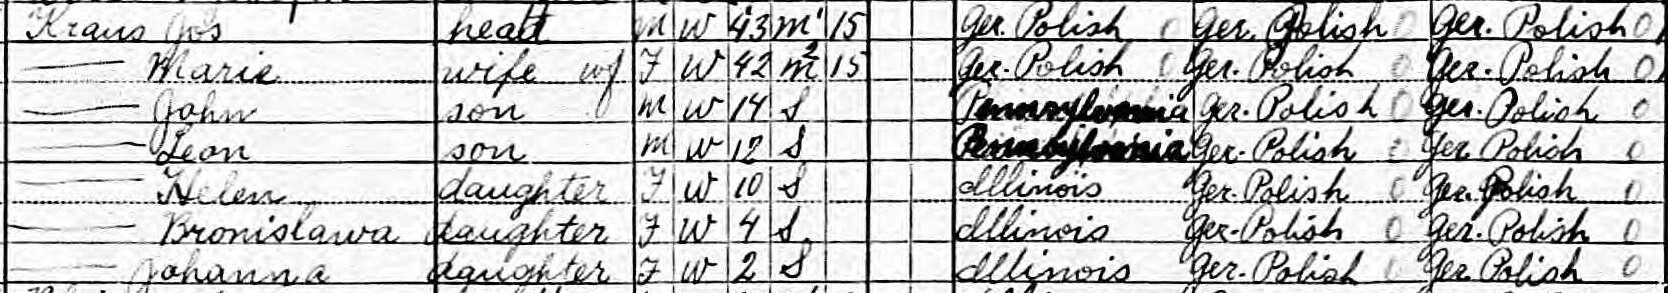 Kraus Jos head M W 43 M1 15 Ger. Polish 0 Ger. Polish 0 Ger. Polish 0
—— Marie wife wf F W 42 M2 15 Ger. Polish 0 Ger. Polish 0 Ger. Polish 0
—— John son M W 14 S Pennsylvania Ger. Polish 0 Ger. Polish 0
—— Leon son M W 12 S Pennsylvania Ger. Polish 0 Ger Polish 0
—— Helen daughter F W 10 S Illinois Ger. Polish 0 Ger. Polish 0
—— Bronislawa daughter F W 4 S Illinois Ger. Polish 0 Ger. Polish 0
—— Johanna daughter F W 2 S Illinois Ger. Polish 0 Ger Polish 0